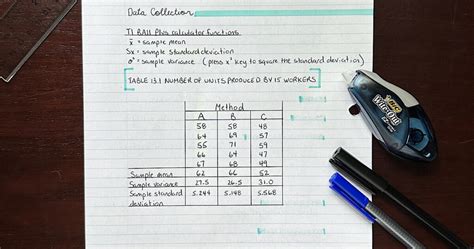 Data Collection
TI BAII Plus calculator functions
x̄ = sample mean
Sx = sample standard deviation
σ² = sample variance (press x² key to square the standard deviation)
TABLE 13.1 NUMBER OF UNITS PRODUCED BY 15 WORKERS
Method
A B C
58 58 48
64 69 57
55 71 59
66 64 47
67 68 49
Sample mean 62 66 52
Sample variance 27.5 26.5 31.0
Sample standard deviation 5.244 5.148 5.568
BIC
Wite-Out